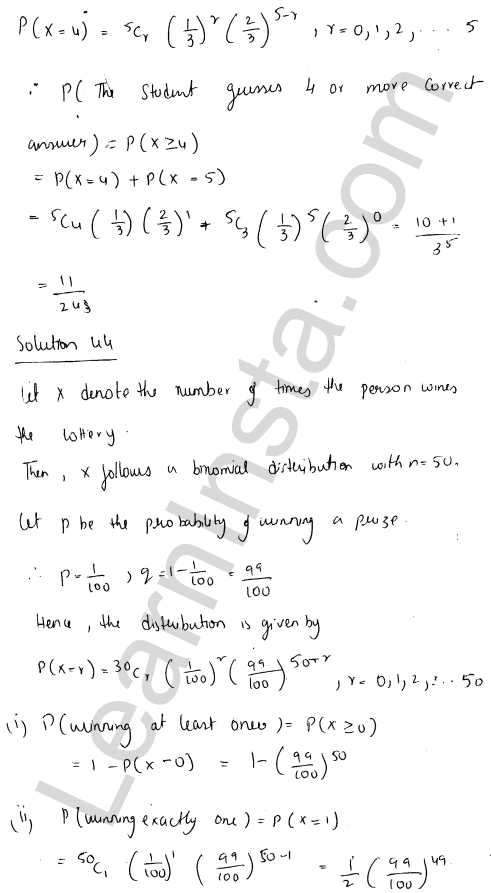 P(x=4) = ⁵Cᵣ (1/3)ʳ (2/3)⁵⁻ʳ , r = 0, 1, 2, ... 5
∴ P( The student guesses 4 or more correct
answer) = P(x ≥ 4)
= P(x=4) + P(x = 5)
= ⁵C₄ (1/3) (2/3)¹ + ⁵C₃ (1/3)⁵ (2/3)⁰ = (10+1)/3⁵
= 11/243
Solution 44
let x denote the number of times the person wines
the lottery.
Then, x follows a binomial distribution with n=50.
let p be the probability of winning a prize.
∴ P = 1/100 , q = 1 - 1/100 = 99/100
Hence, the distribution is given by
P(x=r) = ³⁰Cᵣ (1/100)ʳ (99/100)⁵⁰⁻ʳ , r = 0, 1, 2, ... 50
(i) P(winning at least ones) = P(x ≥ 0)
= 1 - P(x - 0) = 1 - (99/100)⁵⁰
(ii) P(winning exactly one) = P(x = 1)
= ⁵⁰C₁ (1/100)¹ (99/100)⁵⁰⁻¹ = 1/2 (99/100)⁴⁹
LearnInsta.com